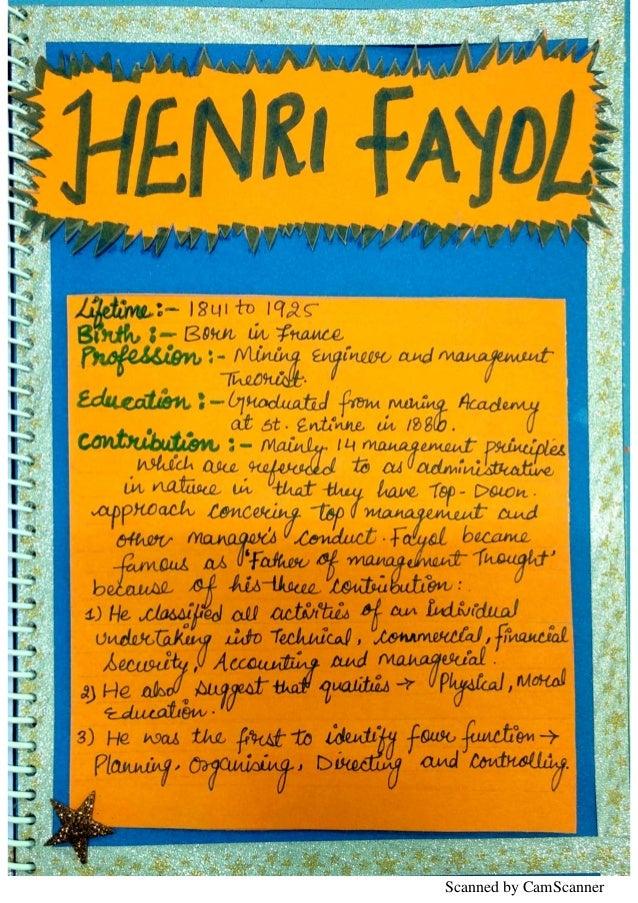 HENRI FAYOL
Lifetime :- 1841 to 1925
Birth :- Born in France
Profession :- Mining Engineer and management
Theorist.
Education :- Graduated from mining Academy
at St. Entinne in 1880.
Contribution :- Mainly 14 management principles
which are referred to as administrative
in nature in that they have Top-Down
approach concering top management and
other manager's conduct. Fayol became
famous as 'Father of management Thought'
because of his three contribution :
1) He classified all activities of an Individual
undertaking into Technical, commercial, financial
Security, Accounting and managerial.
2) He also suggest that qualities → Physical, Moral
Education.
3) He was the first to identify four function →
Planning, Organising, Directing and controlling.
Scanned by CamScanner